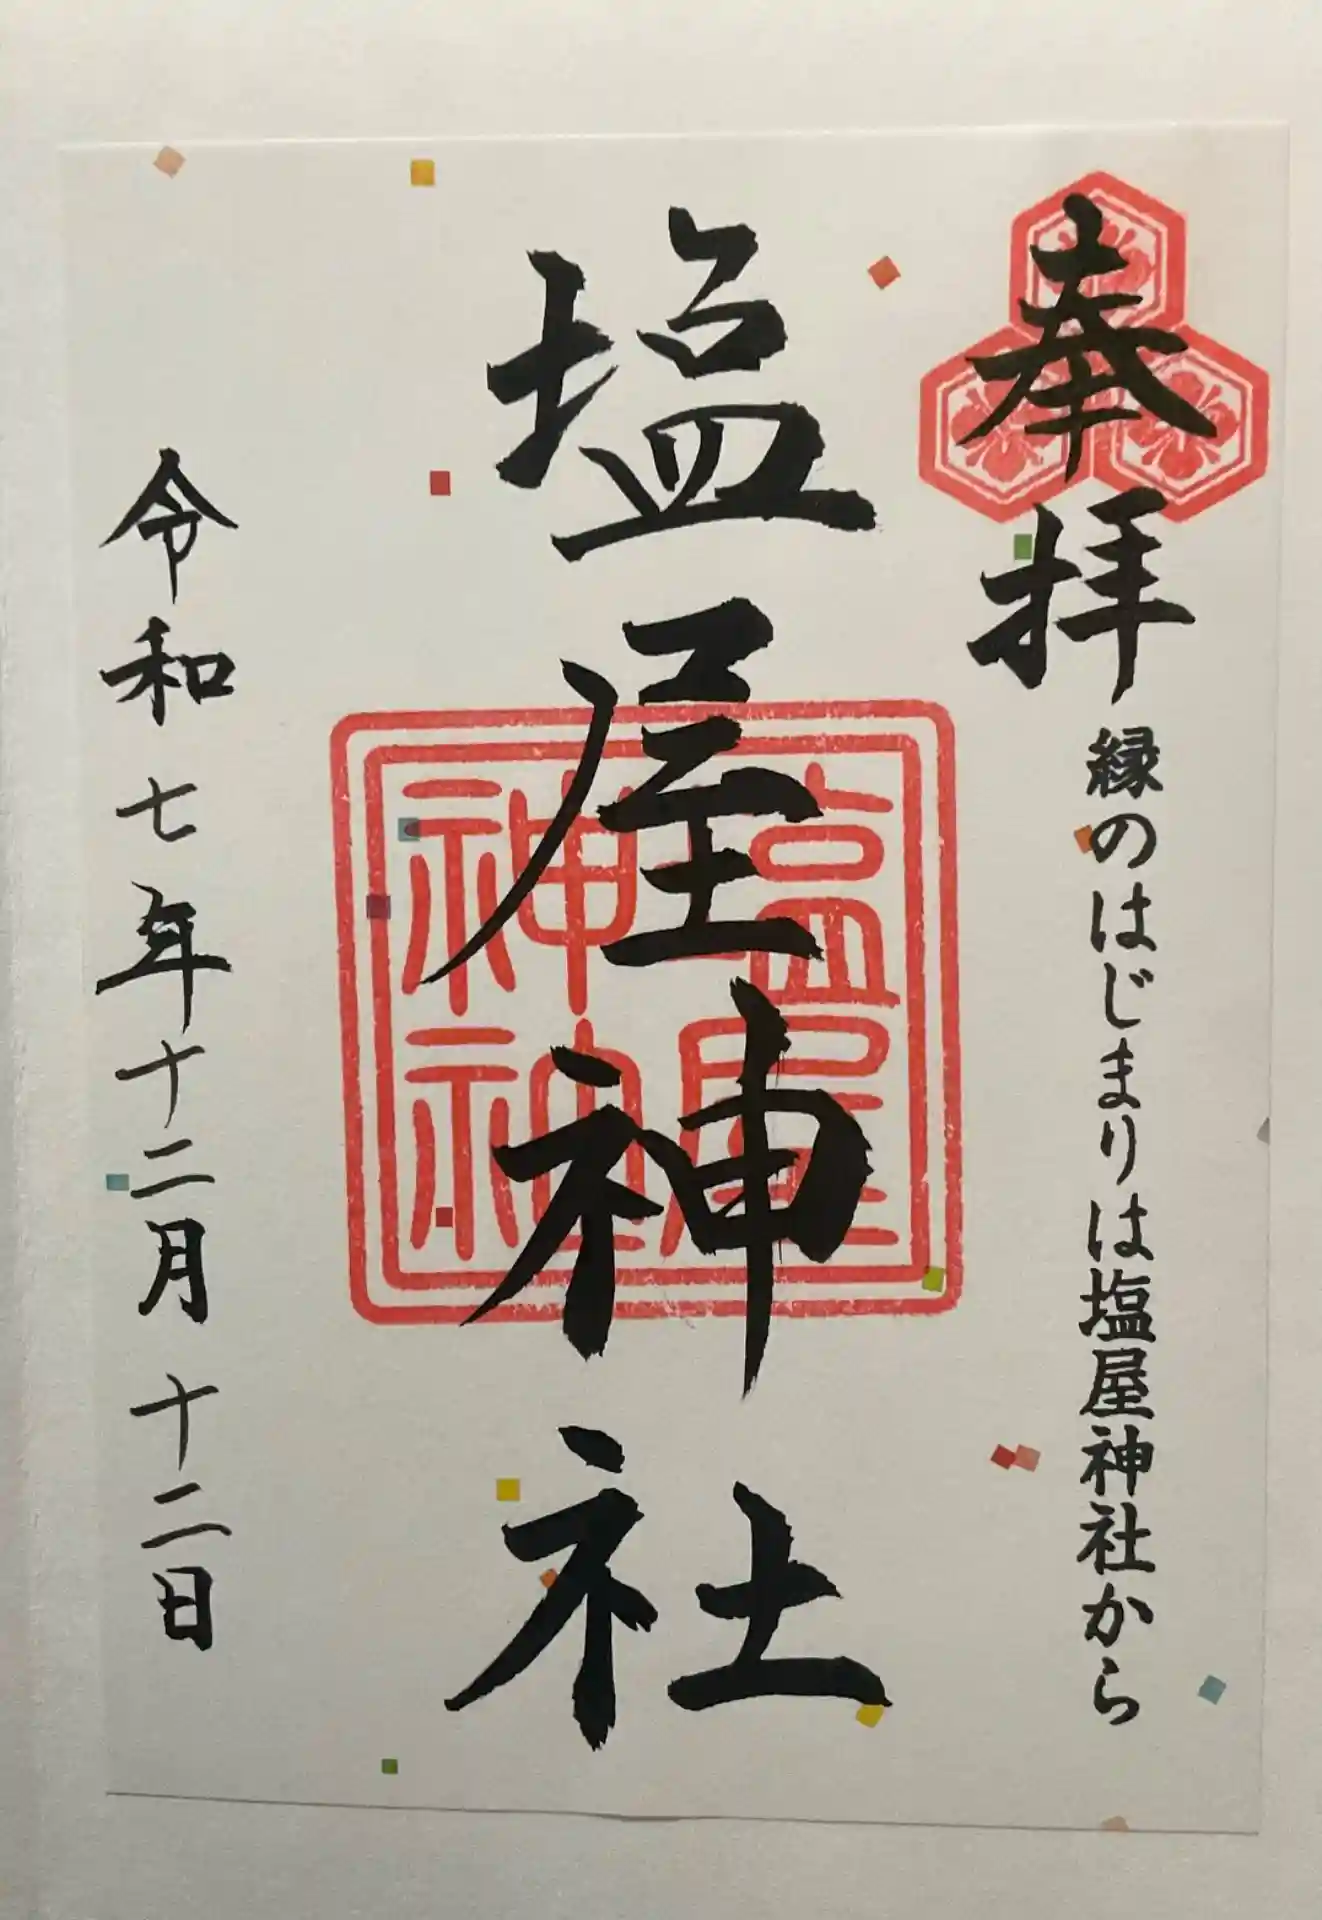 奉拝
縁のはじまりは塩屋神社から
塩屋神社
塩屋
神社
令和七年十二月十二日